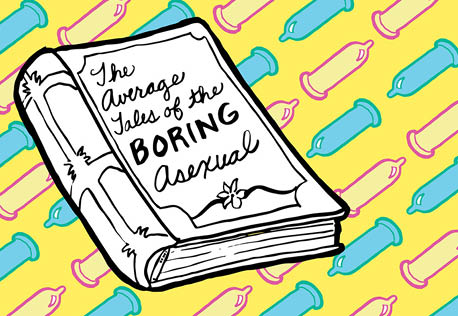 The
Average
Tales of the
BORING
Asexual